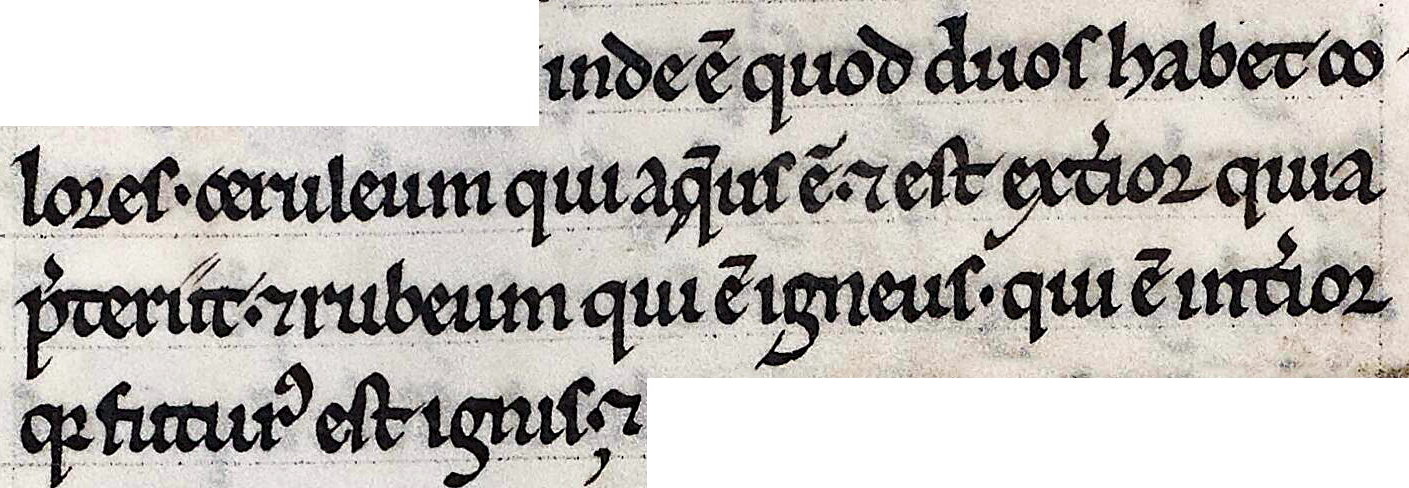 inde ē quod duos habet co
lores· ceruleum qui aq̄us ē·⁊ est extͥior quia
p͛teriit·⁊ rubeum qui ē igneus· qui ē intͥior
qꝛ futurꝰ est ignis·⁊